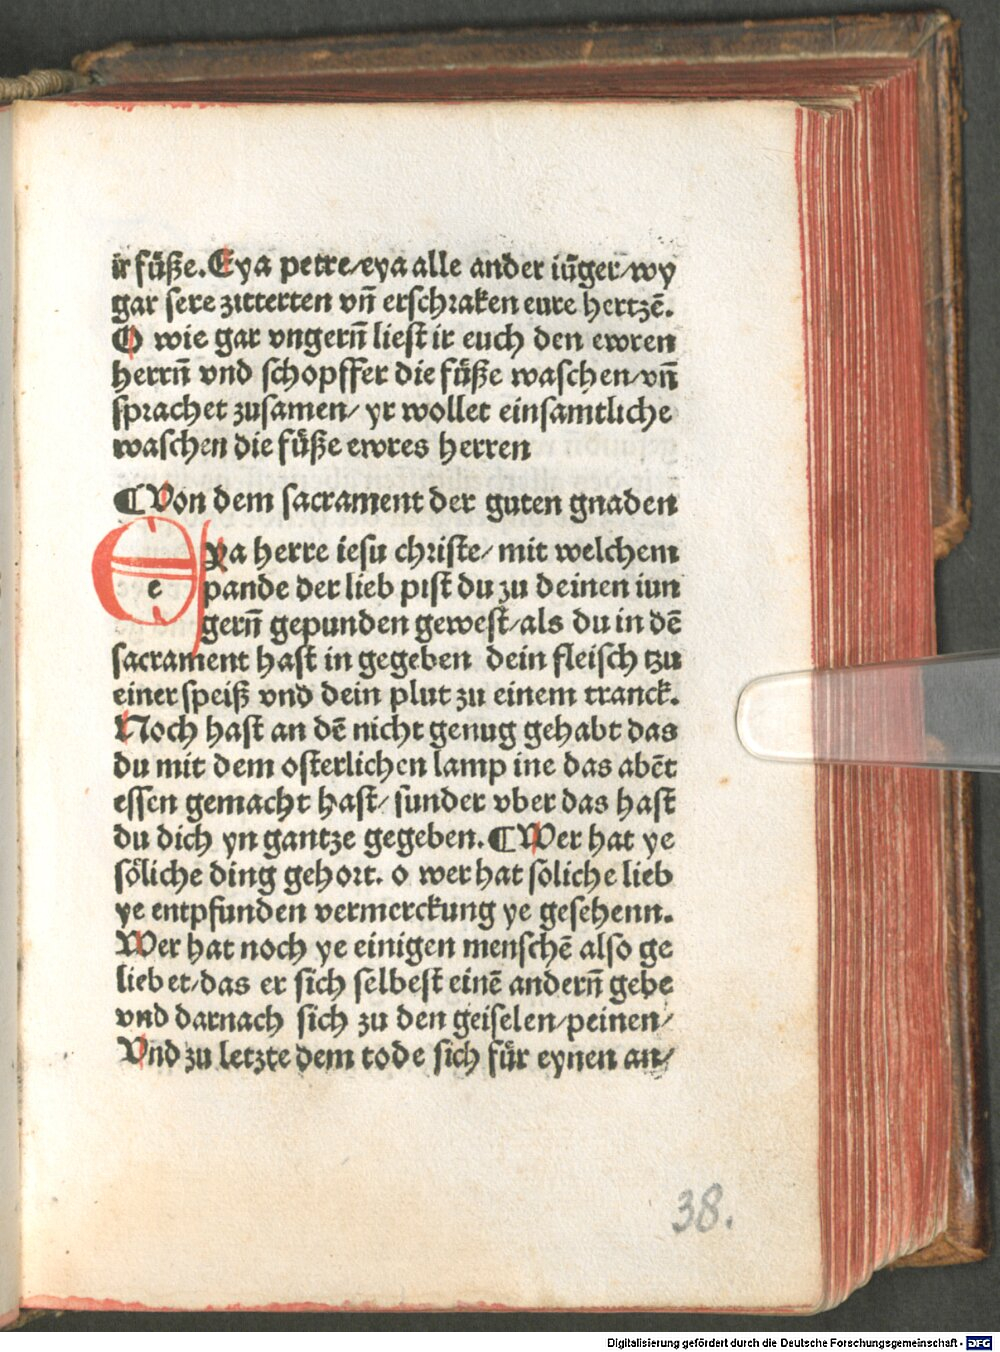 ir fuͤße. Eya petre/eya alle ander iūger/wy
gar sere zitterten vn̄ erschraken eure hertzē.
O wie gar vngern̄ liest ir euch den ewren
herrn̄ vnd schopffer die fuͤße waschen/vn̄
sprachet zusamen/ yr wollet einsamtliche
waschen die fuͤße ewres herren
¶ Von dem sacrament der guten gnaden
Eya herre iesu christe/ mit welchem
e pande der lieb pist du zu deinen iun
gern̄ gepunden gewest/als du in dē
sacrament hast in gegeben dein fleisch tzu
einer speiß vnd dein plut zu einem tranck.
Noch hast an dē nicht genug gehabt das
du mit dem osterlichen lamp ine das abēt
essen gemacht hast/ sunder vber das hast
du dich yn gantze gegeben. ¶ Wer hat ye
soͤliche ding gehort. o wer hat soliche lieb
ye entpfunden vermerckung ye gesehenn.
Wer hat noch ye einigen menschē also ge
liebet/das er sich selbest einē andern̄ gebe
vnd darnach sich zu den geiselen/peinen/
Vnd zu letzte dem tode sich fuͤr eynen an/
38.
Digitalisierung gefördert durch die Deutsche Forschungsgemeinschaft - DFG